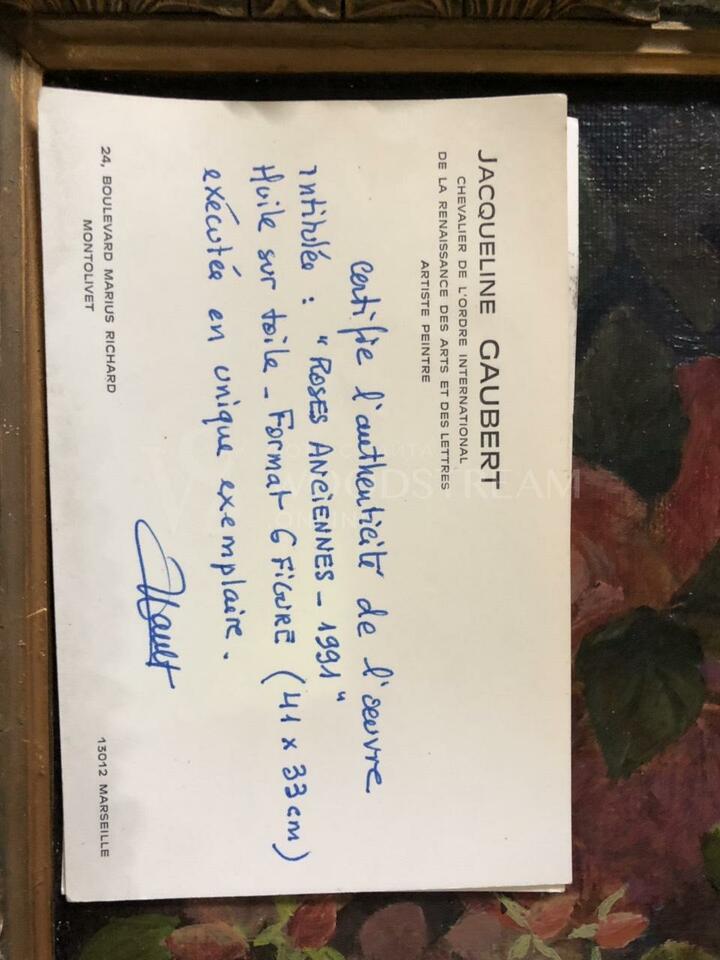 JACQUELINE GAUBERT
CHEVALIER DE L'ORDRE INTERNATIONAL
DE LA RENAISSANCE DES ARTS ET DES LETTRES
ARTISTE PEINTRE
certifie l'authenticité de l'œuvre
intitulée : "ROSES ANCIENNES - 1991"
Huile sur toile - Format 6 FIGURE (41 x 33 cm)
exécutée en unique exemplaire.
24, BOULEVARD MARIUS RICHARD
MONTOLIVET
13012 MARSEILLE
WOODSTREAM